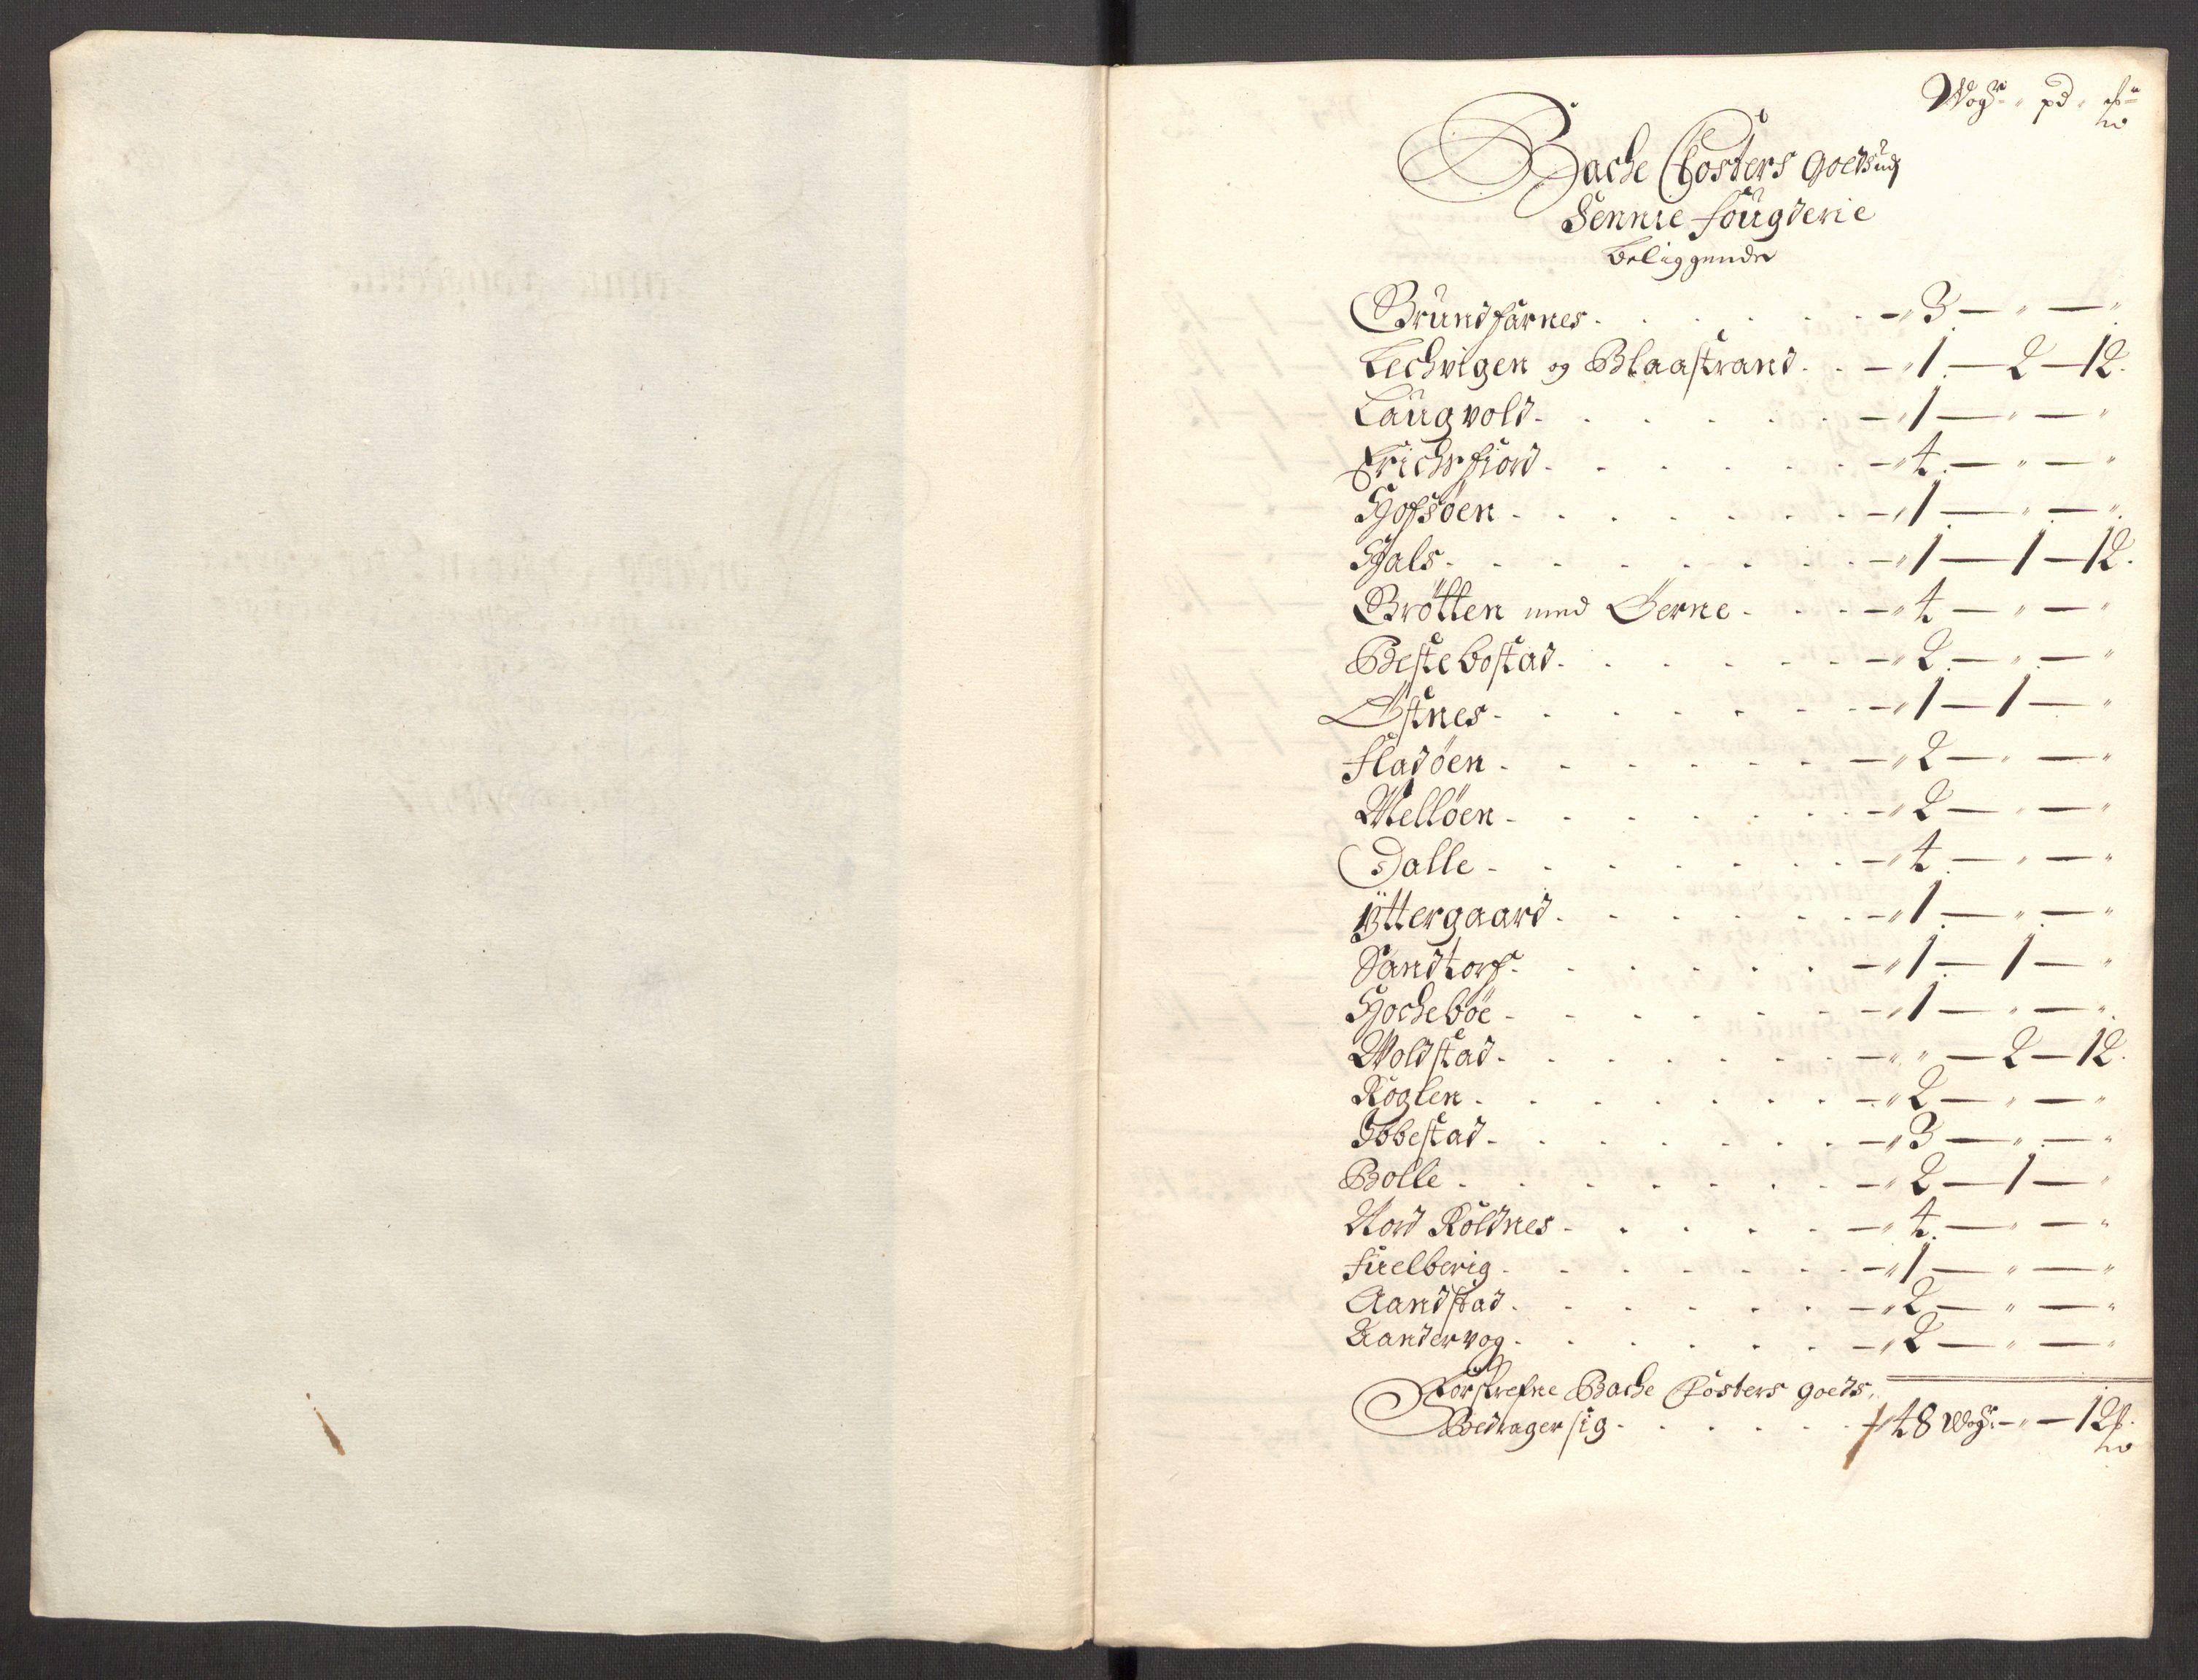 Wogr " pd " ℔r
Bache Closters Goeds udj
Sennie Fougderie
beliggende
Brundfarnes . . . . . - " 3 - " - "
Lechvigen og Blaastrand . . - " 1 - 2 - 12.
Laugvold . . . . . - " 1 - " - "
Erichsfiord . . . . . - " ½ - " - "
Hofsöen . . . . . - " 1 - " - "
Hals . . . . . - " 1 - 1 - 12.
Brötten med Öerne . . . - " ½ - " - "
Bestebostad . . . . . - " 2 - " - "
Östnes . . . . . - " 1 - 1 - "
Fladöen . . . . . - " 2 - " - "
Mellöen . . . . . - " 2 - " - "
Dalle . . . . . - " ½ - " - "
Yttergaard . . . . . - " 1 - " - "
Sandtorf . . . . . - " 1 - 1 - "
Hocheböe . . . . . - " 1 - " - "
Woldstad . . . . . - " " - 2 - 12.
Röglen . . . . . - " 2 - " - "
Ibbestad . . . . . - " 3 - " - "
Bolle . . . . . - " 2 - 1 - "
Nord Roldnes . . . . . - " ½ - " - "
Fuelberig . . . . . - " 1 - " - "
Aandstad . . . . . - " 2 - " - "
Aandervog . . . . . - " 2 - " - "
Forskrefne Bache Closters goeds,
Bedrager sig . . . . . 48 Wogr - " - 12 ℔